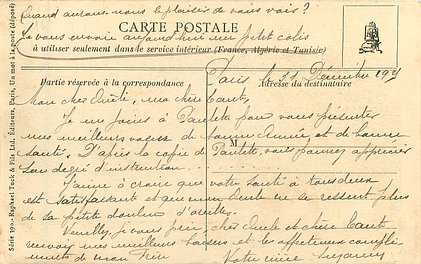 Quand aurons-nous le plaisir de vous voir?
CARTE POSTALE
Je vous envoie aujourd'hui un petit colis
à utiliser seulement dans le service intérieur (France, Algérie et Tunisie)
Paris le 31 Décembre 191
Partie réservée à la correspondance
Adresse du destinataire
Mon cher Oncle, ma chère Tante,
Je me joins à Paulette pour vous présenter
nos meilleurs voeux de bonne Année et de bonne
santé. D'après la copie de Paulette, vous pourrez apprécier
M
son degré d'instruction.
J'aime à croire que votre santé à tous deux
est satisfaisante et que mon oncle ne se ressent plus
de sa petite douleur d'oreilles.
Veuillez, je vous prie, cher Oncle et chère Tante
recevoir mes meilleurs baisers et les affectueux compli-
ments de mon
Votre nièce Suzanne
Série 390 - Raphael Tuck & Fils Ltd, Éditeurs, Paris, Un mot à la poste (déposé)